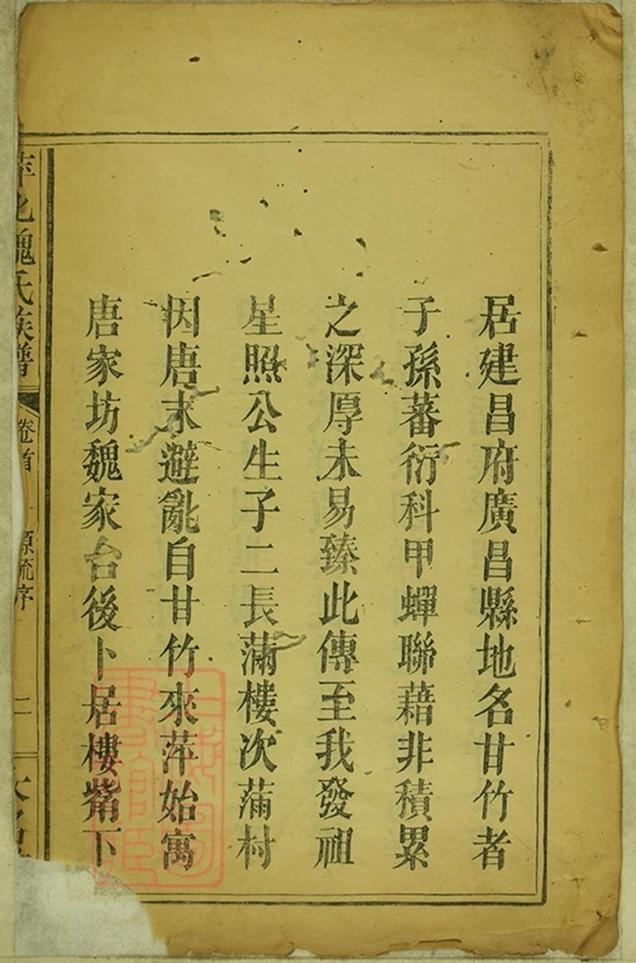 居建昌府廣昌縣地名甘竹者
子孫蕃衍科甲蟬聯藉非積累
之深厚未易臻此傳至我發祖
星照公生子二長滿樓次蒲村
因唐末避亂自甘竹來萍始寓
唐家坊魏家台後卜居樓觜下
魏氏族譜
卷首
源流序
二